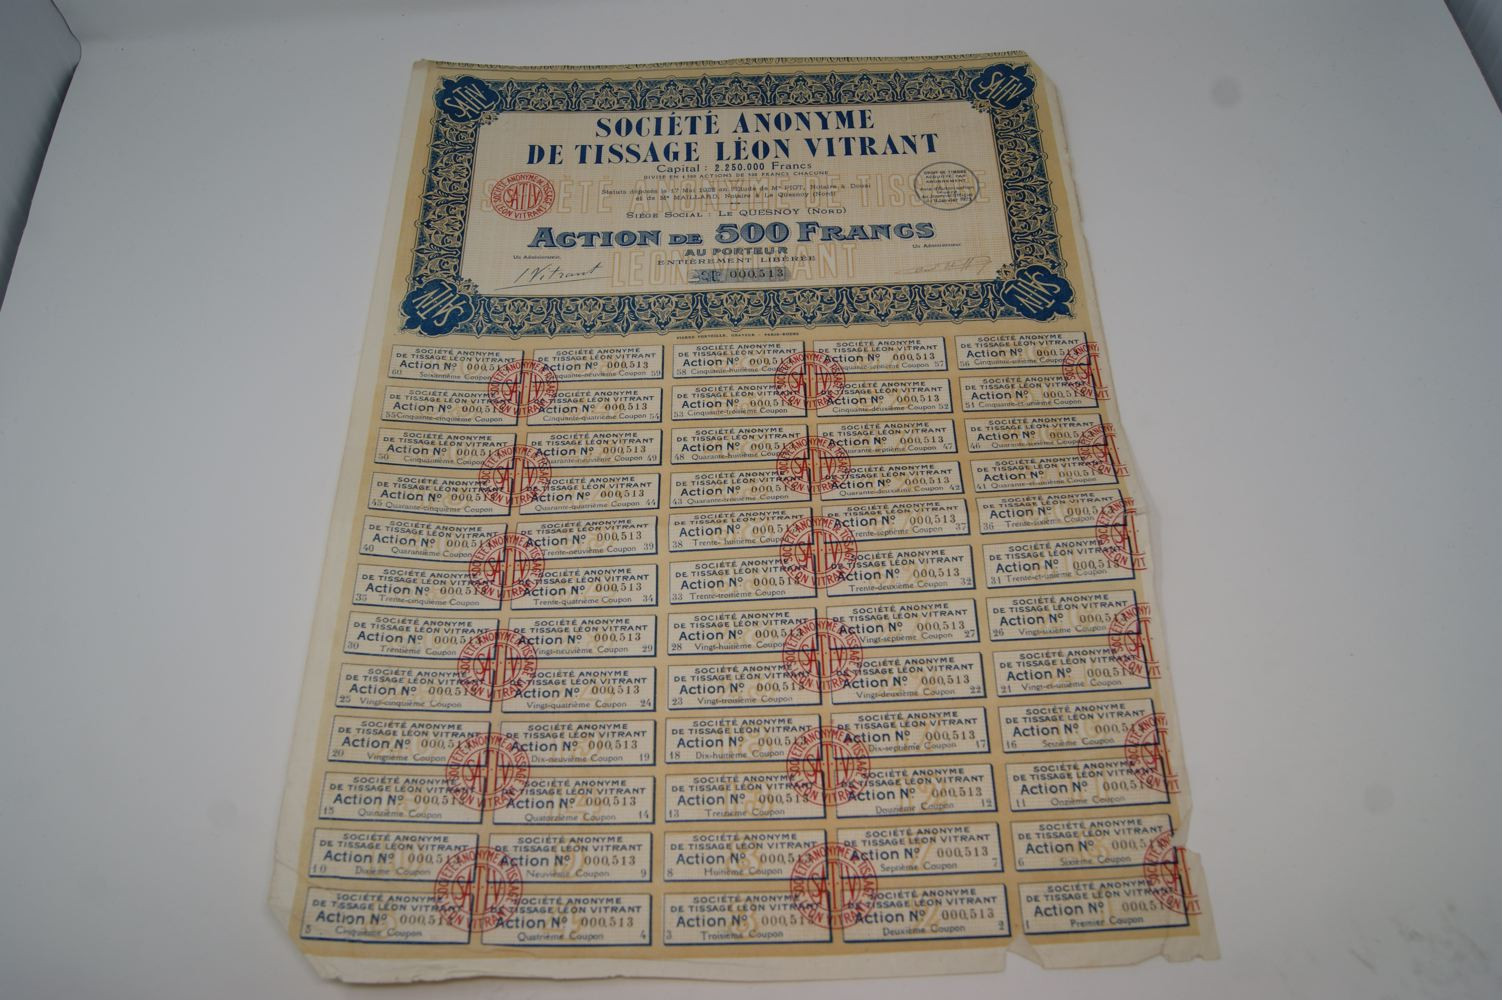 SATLV
SATLV
SOCIÉTÉ ANONYME
DE TISSAGE LÉON VITRANT
Capital : 2.250.000 Francs
DIVISÉ EN 4.500 ACTIONS DE 500 FRANCS CHACUNE
Statuts déposés le 17 Mai 1928 en l'Étude de Me PIOT, Notaire à Douai
et de Me MAILLARD, Notaire à Le Quesnoy (Nord)
SIÈGE SOCIAL : LE QUESNOY (NORD)
ACTION DE 500 FRANCS
AU PORTEUR
ENTIÈREMENT LIBÉRÉE
Un Administrateur,
Un Administrateur,
L Vitrant
000,513
SOCIÉTÉ ANONYME DE TISSAGE
LÉON VITRANT
SOCIÉTÉ ANONYME DE TISSAGE
LÉON VITRANT
DROIT DE TIMBRE
ACQUITTÉ PAR
ABONNEMENT
SATLV
SATLV
SOCIÉTÉ ANONYME
DE TISSAGE LÉON VITRANT
Action No 000,513
60 Soixantième Coupon
SOCIÉTÉ ANONYME
DE TISSAGE LÉON VITRANT
Action No 000,513
Cinquante-neuvième Coupon 59
SOCIÉTÉ ANONYME
DE TISSAGE LÉON VITRANT
Action No 000,513
58 Cinquante-huitième Coupon
SOCIÉTÉ ANONYME
DE TISSAGE LÉON VITRANT
Action No 000,513
Cinquante-septième Coupon 57
SOCIÉTÉ ANONYME
DE TISSAGE LÉON VITRANT
Action No 000,513
56 Cinquante-sixième Coupon
SOCIÉTÉ ANONYME
DE TISSAGE LÉON VITRANT
Action No 000,513
55 Cinquante-cinquième Coupon
SOCIÉTÉ ANONYME
DE TISSAGE LÉON VITRANT
Action No 000,513
Cinquante-quatrième Coupon 54
SOCIÉTÉ ANONYME
DE TISSAGE LÉON VITRANT
Action No 000,513
53 Cinquante-troisième Coupon
SOCIÉTÉ ANONYME
DE TISSAGE LÉON VITRANT
Action No 000,513
Cinquante-deuxième Coupon 52
SOCIÉTÉ ANONYME
DE TISSAGE LÉON VITRANT
Action No 000,513
51 Cinquante-et-unième Coupon
SOCIÉTÉ ANONYME
DE TISSAGE LÉON VITRANT
Action No 000,513
50 Cinquantième Coupon
SOCIÉTÉ ANONYME
DE TISSAGE LÉON VITRANT
Action No 000,513
Quarante-neuvième Coupon 49
SOCIÉTÉ ANONYME
DE TISSAGE LÉON VITRANT
Action No 000,513
48 Quarante-huitième Coupon
SOCIÉTÉ ANONYME
DE TISSAGE LÉON VITRANT
Action No 000,513
Quarante-septième Coupon 47
SOCIÉTÉ ANONYME
DE TISSAGE LÉON VITRANT
Action No 000,513
46 Quarante-sixième Coupon
SOCIÉTÉ ANONYME
DE TISSAGE LÉON VITRANT
Action No 000,513
45 Quarante-cinquième Coupon
SOCIÉTÉ ANONYME
DE TISSAGE LÉON VITRANT
Action No 000,513
Quarante-quatrième Coupon 44
SOCIÉTÉ ANONYME
DE TISSAGE LÉON VITRANT
Action No 000,513
43 Quarante-troisième Coupon
SOCIÉTÉ ANONYME
DE TISSAGE LÉON VITRANT
Action No 000,513
Quarante-deuxième Coupon 42
SOCIÉTÉ ANONYME
DE TISSAGE LÉON VITRANT
Action No 000,513
41 Quarante-et-unième Coupon
SOCIÉTÉ ANONYME
DE TISSAGE LÉON VITRANT
Action No 000,513
40 Quarantième Coupon
SOCIÉTÉ ANONYME
DE TISSAGE LÉON VITRANT
Action No 000,513
Trente-neuvième Coupon 39
SOCIÉTÉ ANONYME
DE TISSAGE LÉON VITRANT
Action No 000,513
38 Trente-huitième Coupon
SOCIÉTÉ ANONYME
DE TISSAGE LÉON VITRANT
Action No 000,513
Trente-septième Coupon 37
SOCIÉTÉ ANONYME
DE TISSAGE LÉON VITRANT
Action No 000,513
36 Trente-sixième Coupon
SOCIÉTÉ ANONYME
DE TISSAGE LÉON VITRANT
Action No 000,513
35 Trente-cinquième Coupon
SOCIÉTÉ ANONYME
DE TISSAGE LÉON VITRANT
Action No 000,513
Trente-quatrième Coupon 34
SOCIÉTÉ ANONYME
DE TISSAGE LÉON VITRANT
Action No 000,513
33 Trente-troisième Coupon
SOCIÉTÉ ANONYME
DE TISSAGE LÉON VITRANT
Action No 000,513
Trente-deuxième Coupon 32
SOCIÉTÉ ANONYME
DE TISSAGE LÉON VITRANT
Action No 000,513
31 Trente-et-unième Coupon
SOCIÉTÉ ANONYME
DE TISSAGE LÉON VITRANT
Action No 000,513
30 Trentième Coupon
SOCIÉTÉ ANONYME
DE TISSAGE LÉON VITRANT
Action No 000,513
Vingt-neuvième Coupon 29
SOCIÉTÉ ANONYME
DE TISSAGE LÉON VITRANT
Action No 000,513
28 Vingt-huitième Coupon
SOCIÉTÉ ANONYME
DE TISSAGE LÉON VITRANT
Action No 000,513
Vingt-septième Coupon 27
SOCIÉTÉ ANONYME
DE TISSAGE LÉON VITRANT
Action No 000,513
26 Vingt-sixième Coupon
SOCIÉTÉ ANONYME
DE TISSAGE LÉON VITRANT
Action No 000,513
25 Vingt-cinquième Coupon
SOCIÉTÉ ANONYME
DE TISSAGE LÉON VITRANT
Action No 000,513
Vingt-quatrième Coupon 24
SOCIÉTÉ ANONYME
DE TISSAGE LÉON VITRANT
Action No 000,513
23 Vingt-troisième Coupon
SOCIÉTÉ ANONYME
DE TISSAGE LÉON VITRANT
Action No 000,513
Vingt-deuxième Coupon 22
SOCIÉTÉ ANONYME
DE TISSAGE LÉON VITRANT
Action No 000,513
21 Vingt-et-unième Coupon
SOCIÉTÉ ANONYME
DE TISSAGE LÉON VITRANT
Action No 000,513
20 Vingtième Coupon
SOCIÉTÉ ANONYME
DE TISSAGE LÉON VITRANT
Action No 000,513
Dix-neuvième Coupon 19
SOCIÉTÉ ANONYME
DE TISSAGE LÉON VITRANT
Action No 000,513
18 Dix-huitième Coupon
SOCIÉTÉ ANONYME
DE TISSAGE LÉON VITRANT
Action No 000,513
Dix-septième Coupon 17
SOCIÉTÉ ANONYME
DE TISSAGE LÉON VITRANT
Action No 000,513
16 Seizième Coupon
SOCIÉTÉ ANONYME
DE TISSAGE LÉON VITRANT
Action No 000,513
15 Quinzième Coupon
SOCIÉTÉ ANONYME
DE TISSAGE LÉON VITRANT
Action No 000,513
Quatorzième Coupon 14
SOCIÉTÉ ANONYME
DE TISSAGE LÉON VITRANT
Action No 000,513
13 Treizième Coupon
SOCIÉTÉ ANONYME
DE TISSAGE LÉON VITRANT
Action No 000,513
Douzième Coupon 12
SOCIÉTÉ ANONYME
DE TISSAGE LÉON VITRANT
Action No 000,513
11 Onzième Coupon
SOCIÉTÉ ANONYME
DE TISSAGE LÉON VITRANT
Action No 000,513
10 Dixième Coupon
SOCIÉTÉ ANONYME
DE TISSAGE LÉON VITRANT
Action No 000,513
Neuvième Coupon 9
SOCIÉTÉ ANONYME
DE TISSAGE LÉON VITRANT
Action No 000,513
8 Huitième Coupon
SOCIÉTÉ ANONYME
DE TISSAGE LÉON VITRANT
Action No 000,513
Septième Coupon 7
SOCIÉTÉ ANONYME
DE TISSAGE LÉON VITRANT
Action No 000,513
6 Sixième Coupon
SOCIÉTÉ ANONYME
DE TISSAGE LÉON VITRANT
Action No 000,513
5 Cinquième Coupon
SOCIÉTÉ ANONYME
DE TISSAGE LÉON VITRANT
Action No 000,513
Quatrième Coupon 4
SOCIÉTÉ ANONYME
DE TISSAGE LÉON VITRANT
Action No 000,513
3 Troisième Coupon
SOCIÉTÉ ANONYME
DE TISSAGE LÉON VITRANT
Action No 000,513
Deuxième Coupon 2
SOCIÉTÉ ANONYME
DE TISSAGE LÉON VITRANT
Action No 000,513
1 Premier Coupon